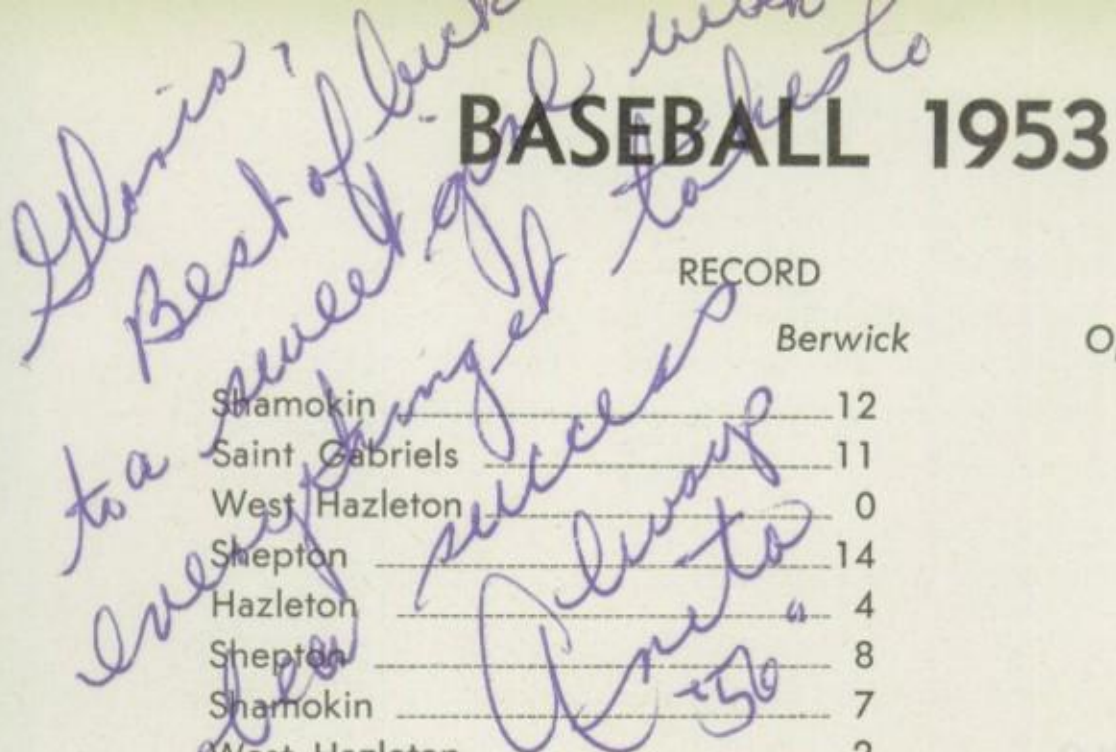 Gloria,
Best of luck
to a sweet girl with
everything it takes to
success
Always
Anita
"56"
BASEBALL 1953
RECORD
Berwick
Shamokin 12
Saint Gabriels 11
West Hazleton 0
Shepton 14
Hazleton 4
Shepton 8
Shamokin 7
West Hazleton 2